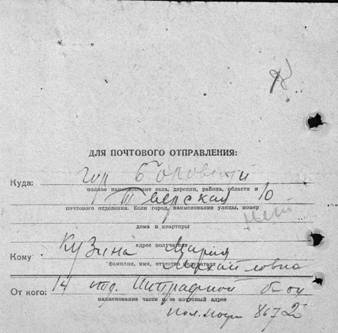 ДЛЯ ПОЧТОВОГО ОТПРАВЛЕНИЯ:
Куда: гор Боровичи
полное наименование села, деревни, района, области и
Тверская 10
почтового отделения. Если город, наименование улицы, номер
дома и квартиры
Кузина Мария
адрес получателя
Кому Михайловна
фамилия, имя, отчество
От кого: 14 отд. Штрафной бат
наименование части и ее почтовый адрес
пол. почт 8672